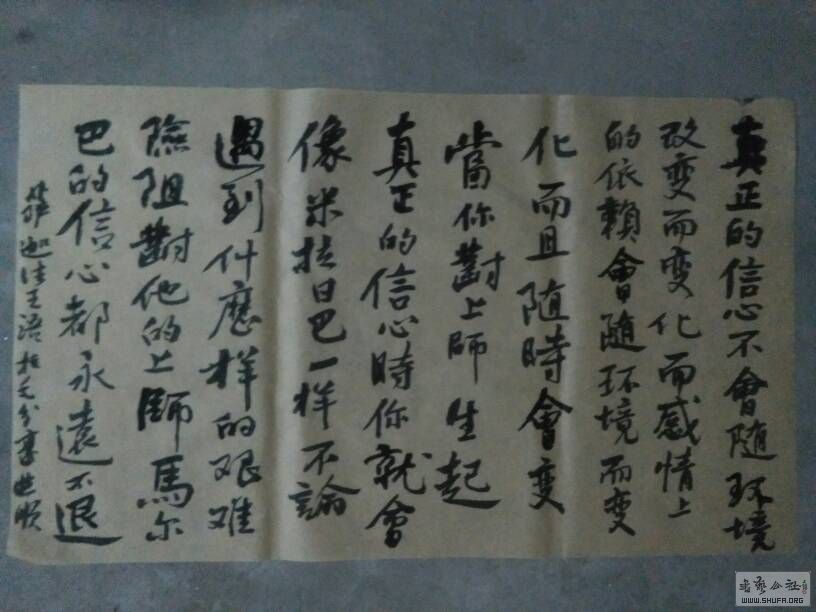 真正的信心不會随环境
改变而变化而感情上
的依賴會随环境而变
化而且随時會变
當你對上師生起
真正的信心時你就會
像米拉日巴一样不論
遇到什麽样的艰难
險阻對他的上師馬尔
巴的信心都永遠不退
法王语
書藝公社
WWW.SHUFA.ORG